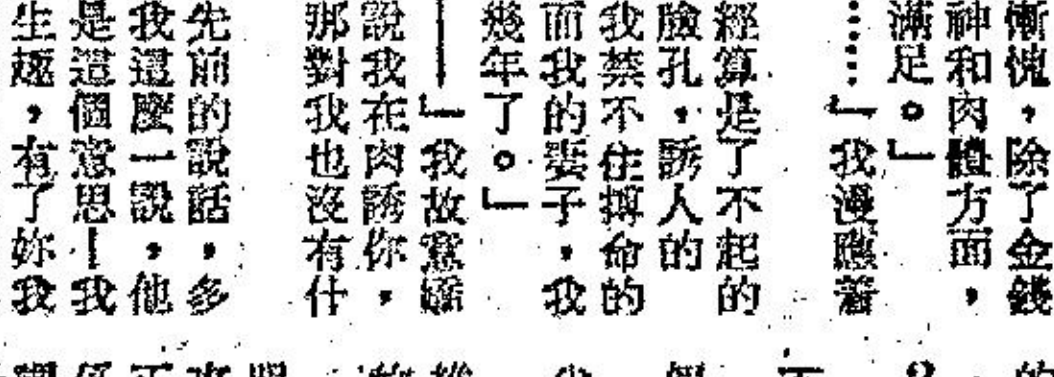 慚愧，除了金錢
神和肉體方面，
滿足。」
……」我漫應着
經算是了不起的
臉孔，誘人的
我禁不住搏命的
而我的妻子，我
幾年了。」
——」我故意嬌
說我在肉誘你，
那對我也沒有什
先前的說話，多
我這麼一說，他
是這個意思！我
生趣，有了妳我